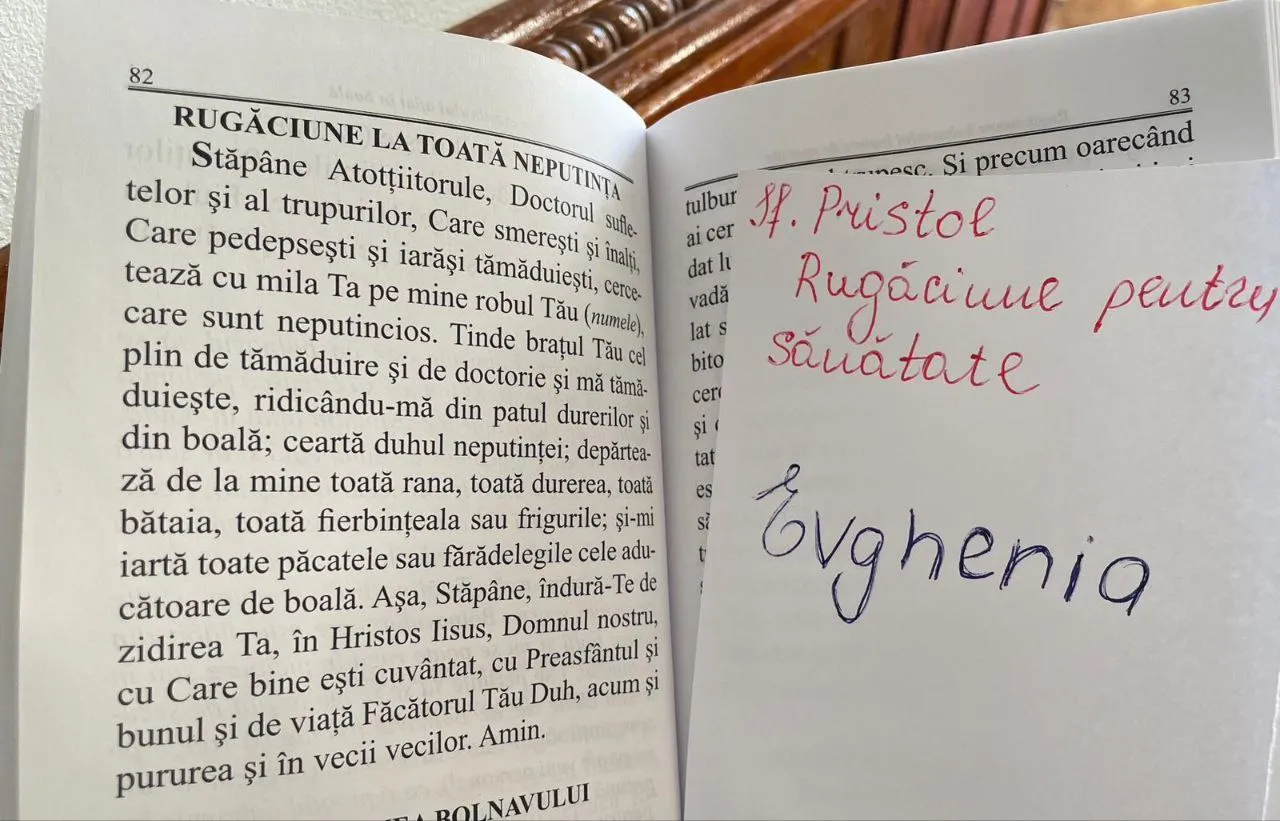 82
RUGĂCIUNE LA TOATĂ NEPUTINȚA
Stăpâne Atotțiitorule, Doctorul sufle-
telor și al trupurilor, Care smerești și înalți,
Care pedepsești și iarăși tămăduiești, cerce-
tează cu mila Ta pe mine robul Tău (numele),
care sunt neputincios. Tinde brațul Tău cel
plin de tămăduire și de doctorie și mă tămă-
duiește, ridicându-mă din patul durerilor și
din boală; ceartă duhul neputinței; depărtea-
ză de la mine toată rana, toată durerea, toată
bătaia, toată fierbințeala sau frigurile; și-mi
iartă toate păcatele sau fărădelegile cele adu-
cătoare de boală. Așa, Stăpâne, îndură-Te de
zidirea Ta, în Hristos Iisus, Domnul nostru,
cu Care bine ești cuvântat, cu Preasfântul și
bunul și de viață Făcătorul Tău Duh, acum și
pururea și în vecii vecilor. Amin.
BOLNAVULUI
83
tulbur Și precum oarecând
ai cer
dat lu
vadă
lat s
bito
cerc
și
tat
es
Sf. Pristol
Rugăciune pentru
sănătate
Evghenia